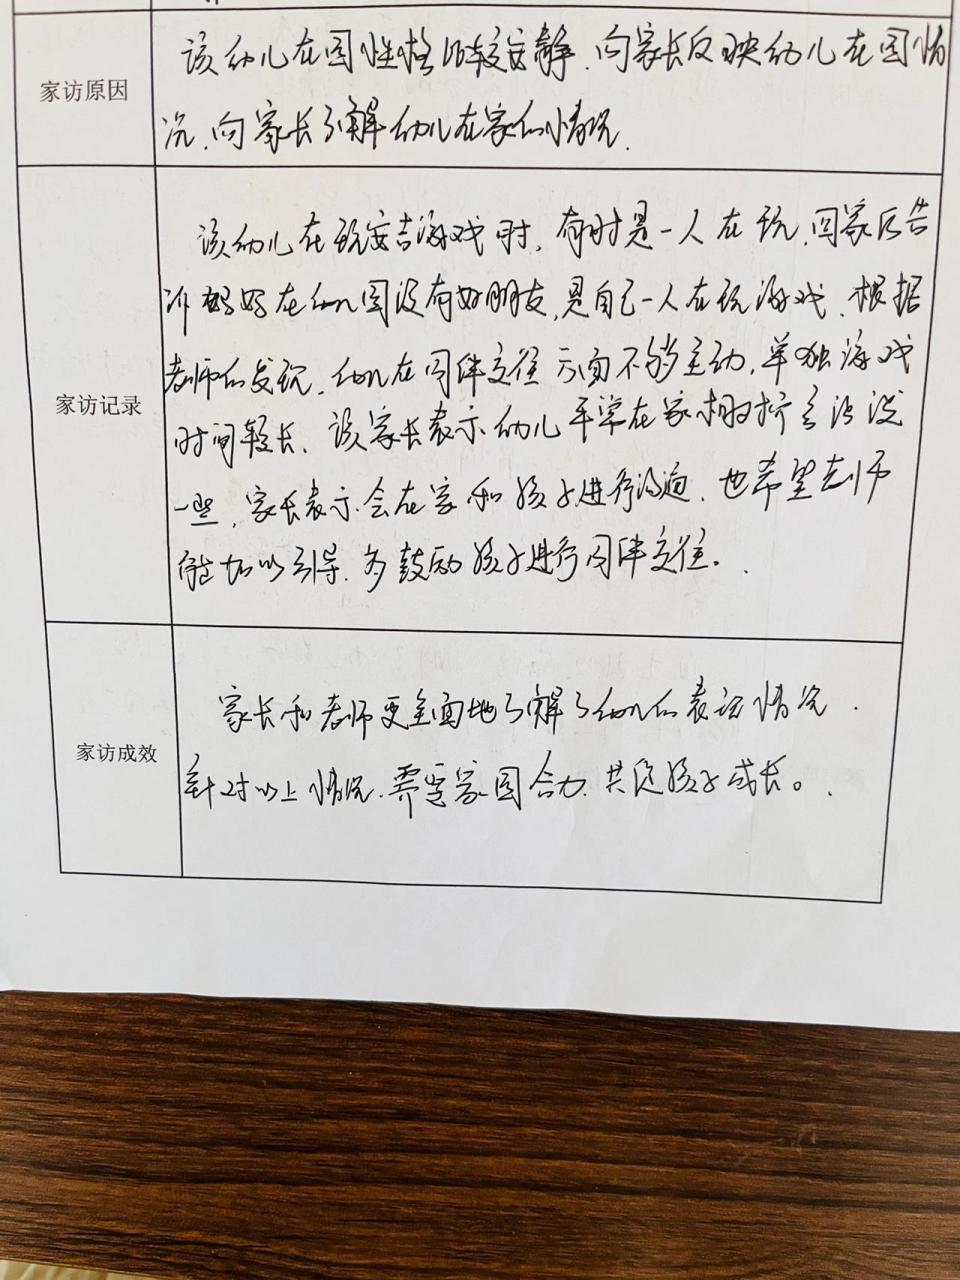 家访原因
该幼儿在园性格比较安静、向家长反映幼儿在园情
况、向家长了解幼儿在家的情况.
家访记录
该幼儿在玩安吉游戏时,有时是一人在玩,回家后告
诉妈妈在幼儿园没有好朋友,是自己一人在玩游戏、根据
老师的发现,幼儿在同伴交往方面不够主动,单独游戏
时间较长、该家长表示幼儿平常在家相对会活泼
一些,家长表示会在家和孩子进行沟通、也希望老师
能加以引导、多鼓励孩子进行同伴交往。
家访成效
家长和老师更全面地了解了幼儿的表现情况.
针对以上情况、需要家园合力、共促孩子成长。